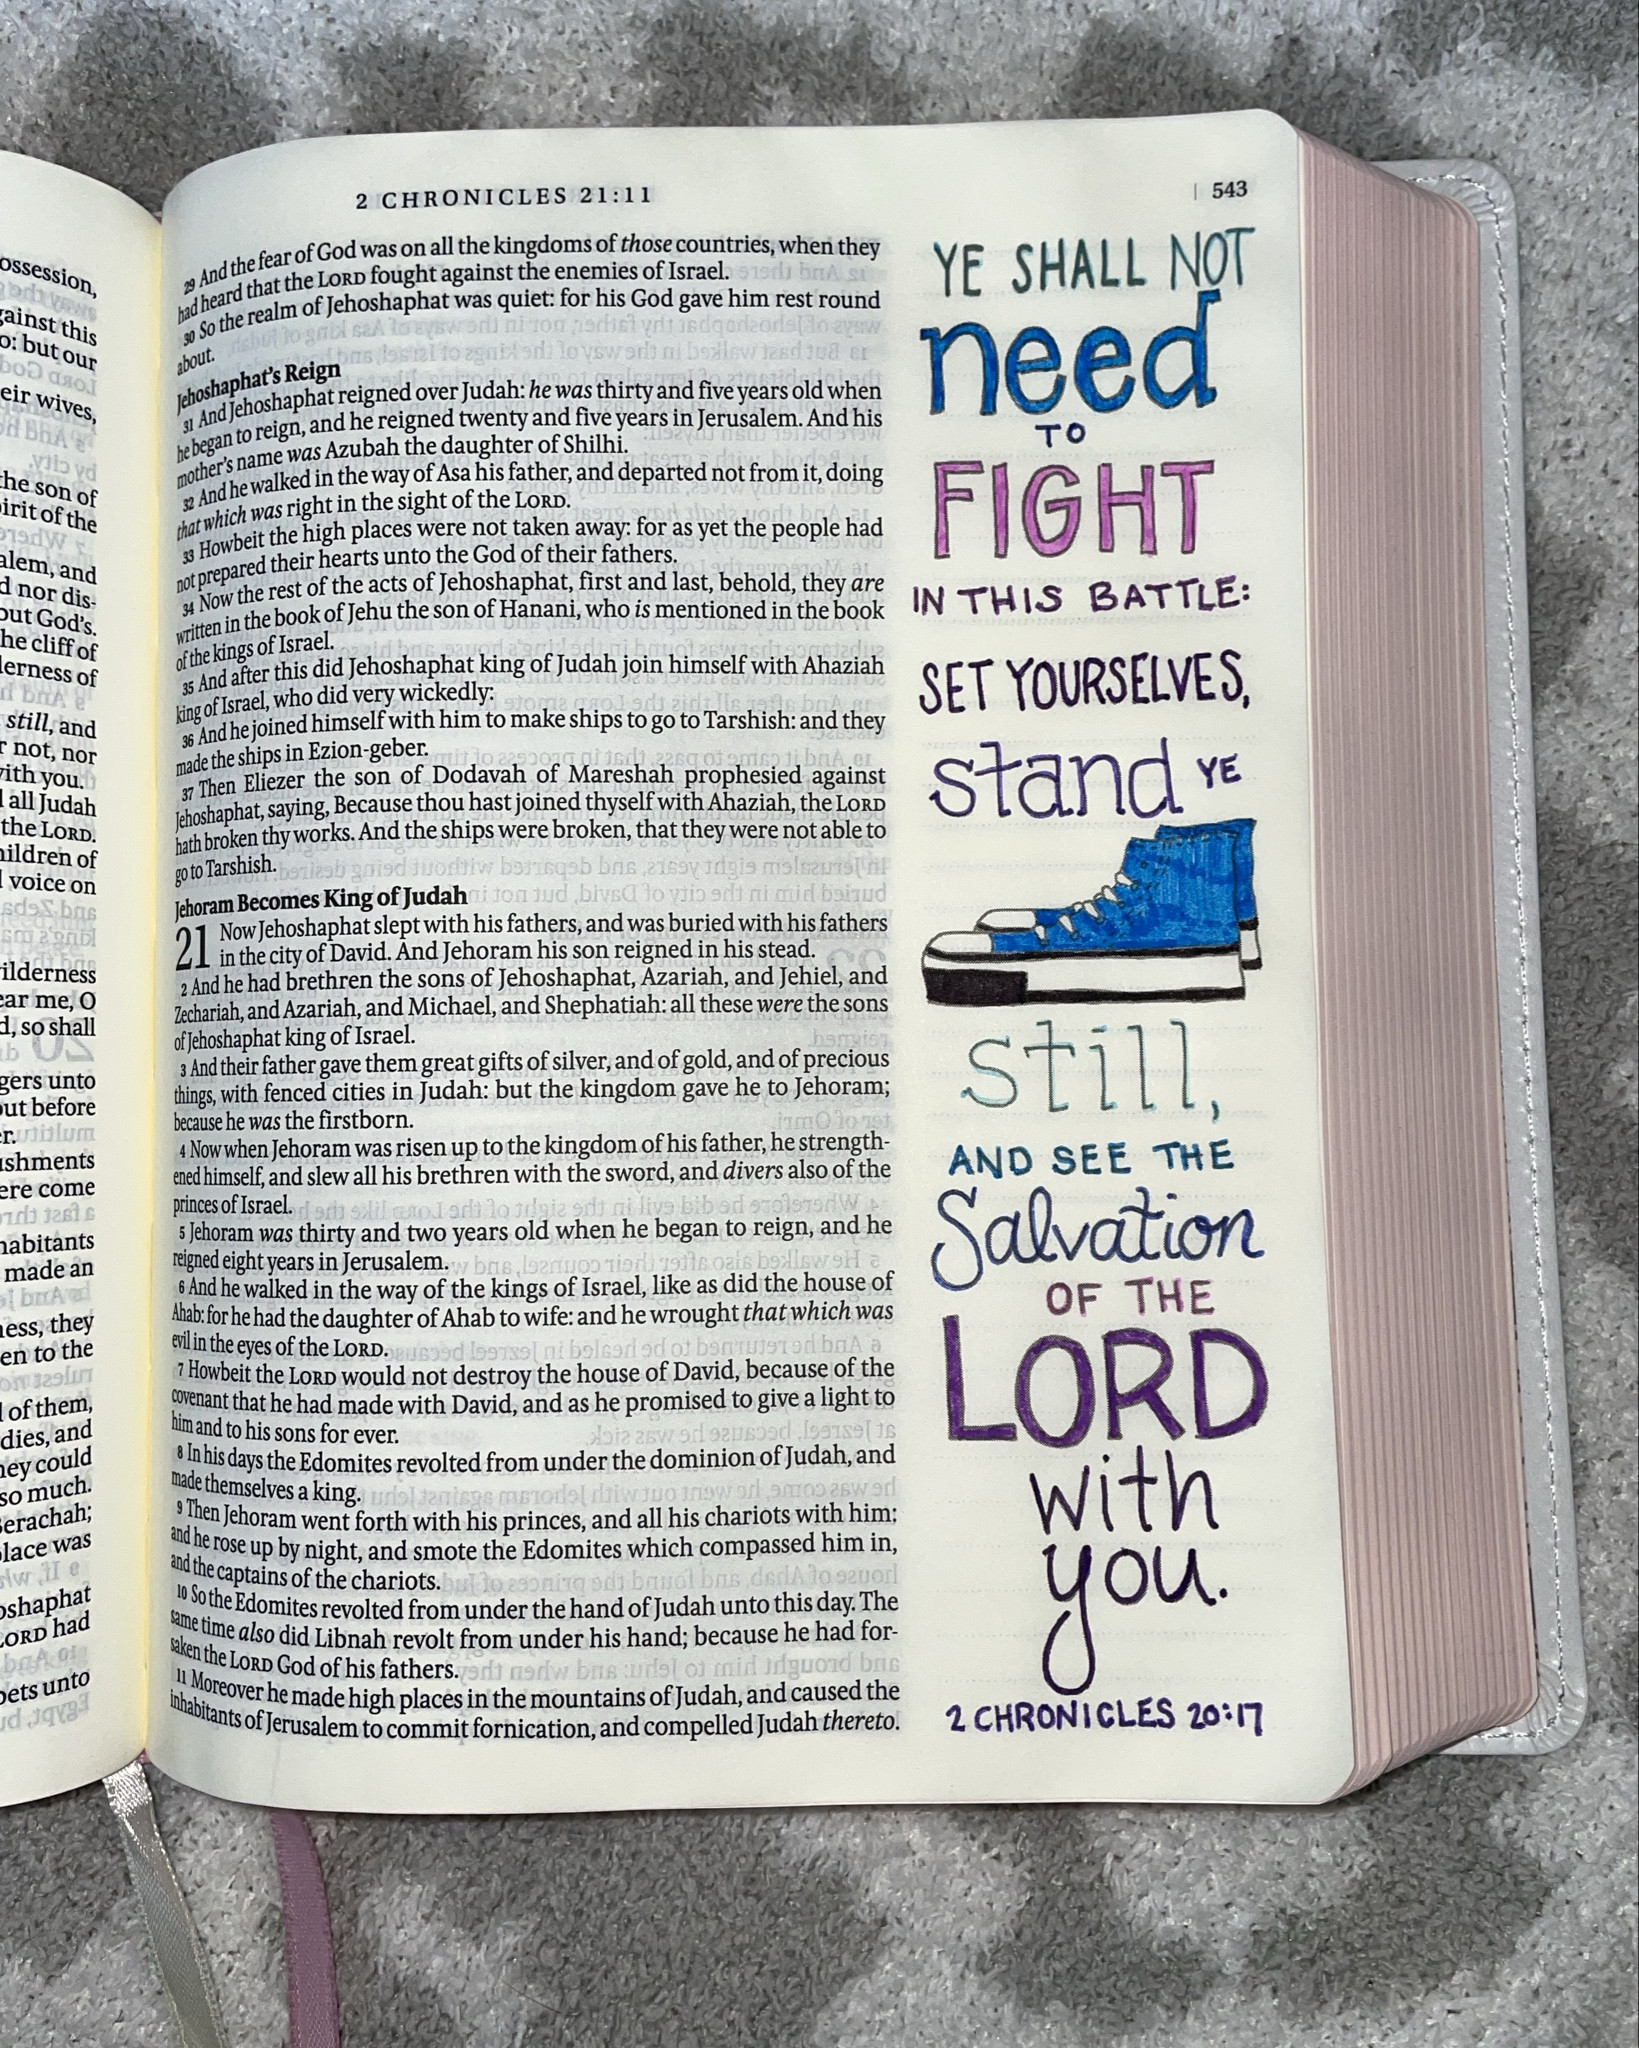 ossession,
gainst this
o: but our
eir wives,
the son of
irit of the
alem, and
d nor dis-
out God's.
he cliff of
lerness of
still, and
r not, nor
with you.
all Judah
the LORD.
hildren of
voice on
ilderness
ear me, O
d, so shall
gers unto
out before
er.
shments
ere come
habitants
made an
ness, they
en to the
of them,
dies, and
hey could
so much.
Berachah;
lace was
oshaphat
LORD had
pets unto
2 CHRONICLES 21:11
| 543
29 And the fear of God was on all the kingdoms of those countries, when they
had heard that the LORD fought against the enemies of Israel.
30 So the realm of Jehoshaphat was quiet: for his God gave him rest round
about.
Jehoshaphat's Reign
31 And Jehoshaphat reigned over Judah: he was thirty and five years old when
he began to reign, and he reigned twenty and five years in Jerusalem. And his
mother's name was Azubah the daughter of Shilhi.
32 And he walked in the way of Asa his father, and departed not from it, doing
that which was right in the sight of the LORD.
33 Howbeit the high places were not taken away: for as yet the people had
not prepared their hearts unto the God of their fathers.
34 Now the rest of the acts of Jehoshaphat, first and last, behold, they are
written in the book of Jehu the son of Hanani, who is mentioned in the book
of the kings of Israel.
35 And after this did Jehoshaphat king of Judah join himself with Ahaziah
king of Israel, who did very wickedly:
36 And he joined himself with him to make ships to go to Tarshish: and they
made the ships in Ezion-geber.
37 Then Eliezer the son of Dodavah of Mareshah prophesied against
Jehoshaphat, saying, Because thou hast joined thyself with Ahaziah, the LORD
hath broken thy works. And the ships were broken, that they were not able to
go to Tarshish.
Jehoram Becomes King of Judah
21 Now Jehoshaphat slept with his fathers, and was buried with his fathers
in the city of David. And Jehoram his son reigned in his stead.
2 And he had brethren the sons of Jehoshaphat, Azariah, and Jehiel, and
Zechariah, and Azariah, and Michael, and Shephatiah: all these were the sons
of Jehoshaphat king of Israel.
3 And their father gave them great gifts of silver, and of gold, and of precious
things, with fenced cities in Judah: but the kingdom gave he to Jehoram;
because he was the firstborn.
4 Now when Jehoram was risen up to the kingdom of his father, he strength-
ened himself, and slew all his brethren with the sword, and divers also of the
princes of Israel.
5 Jehoram was thirty and two years old when he began to reign, and he
reigned eight years in Jerusalem.
6 And he walked in the way of the kings of Israel, like as did the house of
Ahab: for he had the daughter of Ahab to wife: and he wrought that which was
evil in the eyes of the LORD.
7 Howbeit the LORD would not destroy the house of David, because of the
covenant that he had made with David, and as he promised to give a light to
him and to his sons for ever.
8 In his days the Edomites revolted from under the dominion of Judah, and
made themselves a king.
9 Then Jehoram went forth with his princes, and all his chariots with him:
and he rose up by night, and smote the Edomites which compassed him in,
and the captains of the chariots.
10 So the Edomites revolted from under the hand of Judah unto this day. The
same time also did Libnah revolt from under his hand; because he had for-
saken the LORD God of his fathers.
11 Moreover he made high places in the mountains of Judah, and caused the
inhabitants of Jerusalem to commit fornication, and compelled Judah thereto.
YE SHALL NOT
need
TO
FIGHT
IN THIS BATTLE:
SET YOURSELVES,
stand YE
still,
AND SEE THE
Salvation
OF THE
LORD
with
you.
2 CHRONICLES 20:17